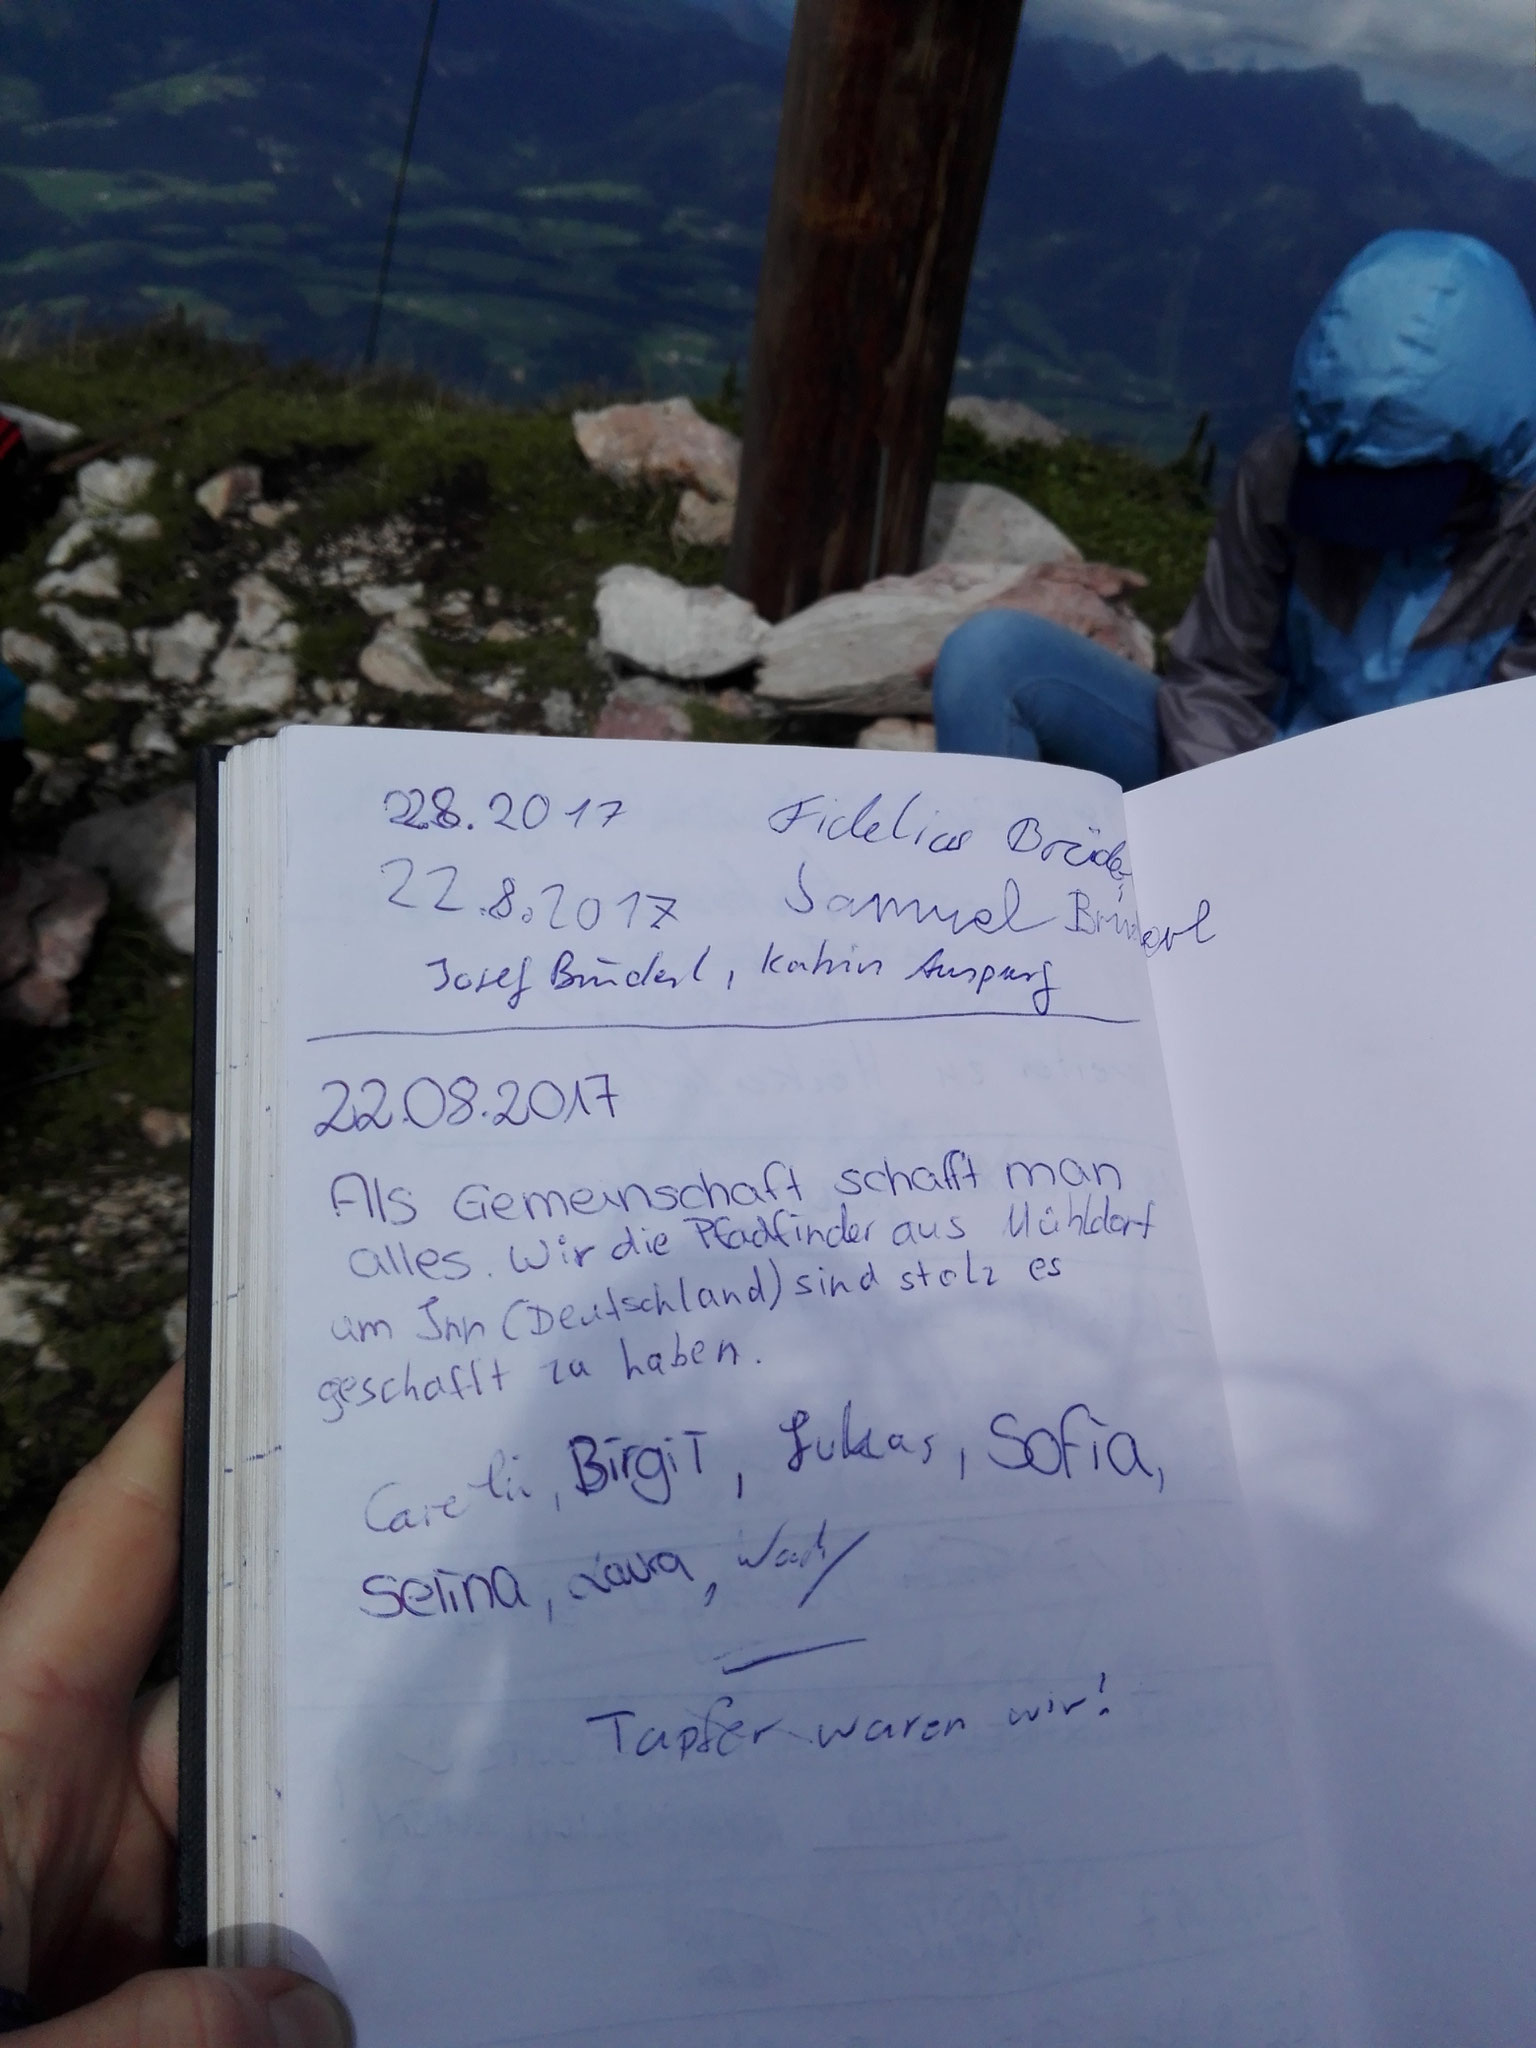 22.8.2017 Fidelius Brüde
22.8.2017 Samuel Brüderl
Josef Brüderl, Katrin Auspurg
22.08.2017
Als Gemeinschaft schafft man
alles. Wir die Pfadfinder aus Mühldorf
am Inn (Deutschland) sind stolz es
geschafft zu haben.
Birgit, Lukas, Sofia,
Selina, Laura,
Tapfer waren wir!